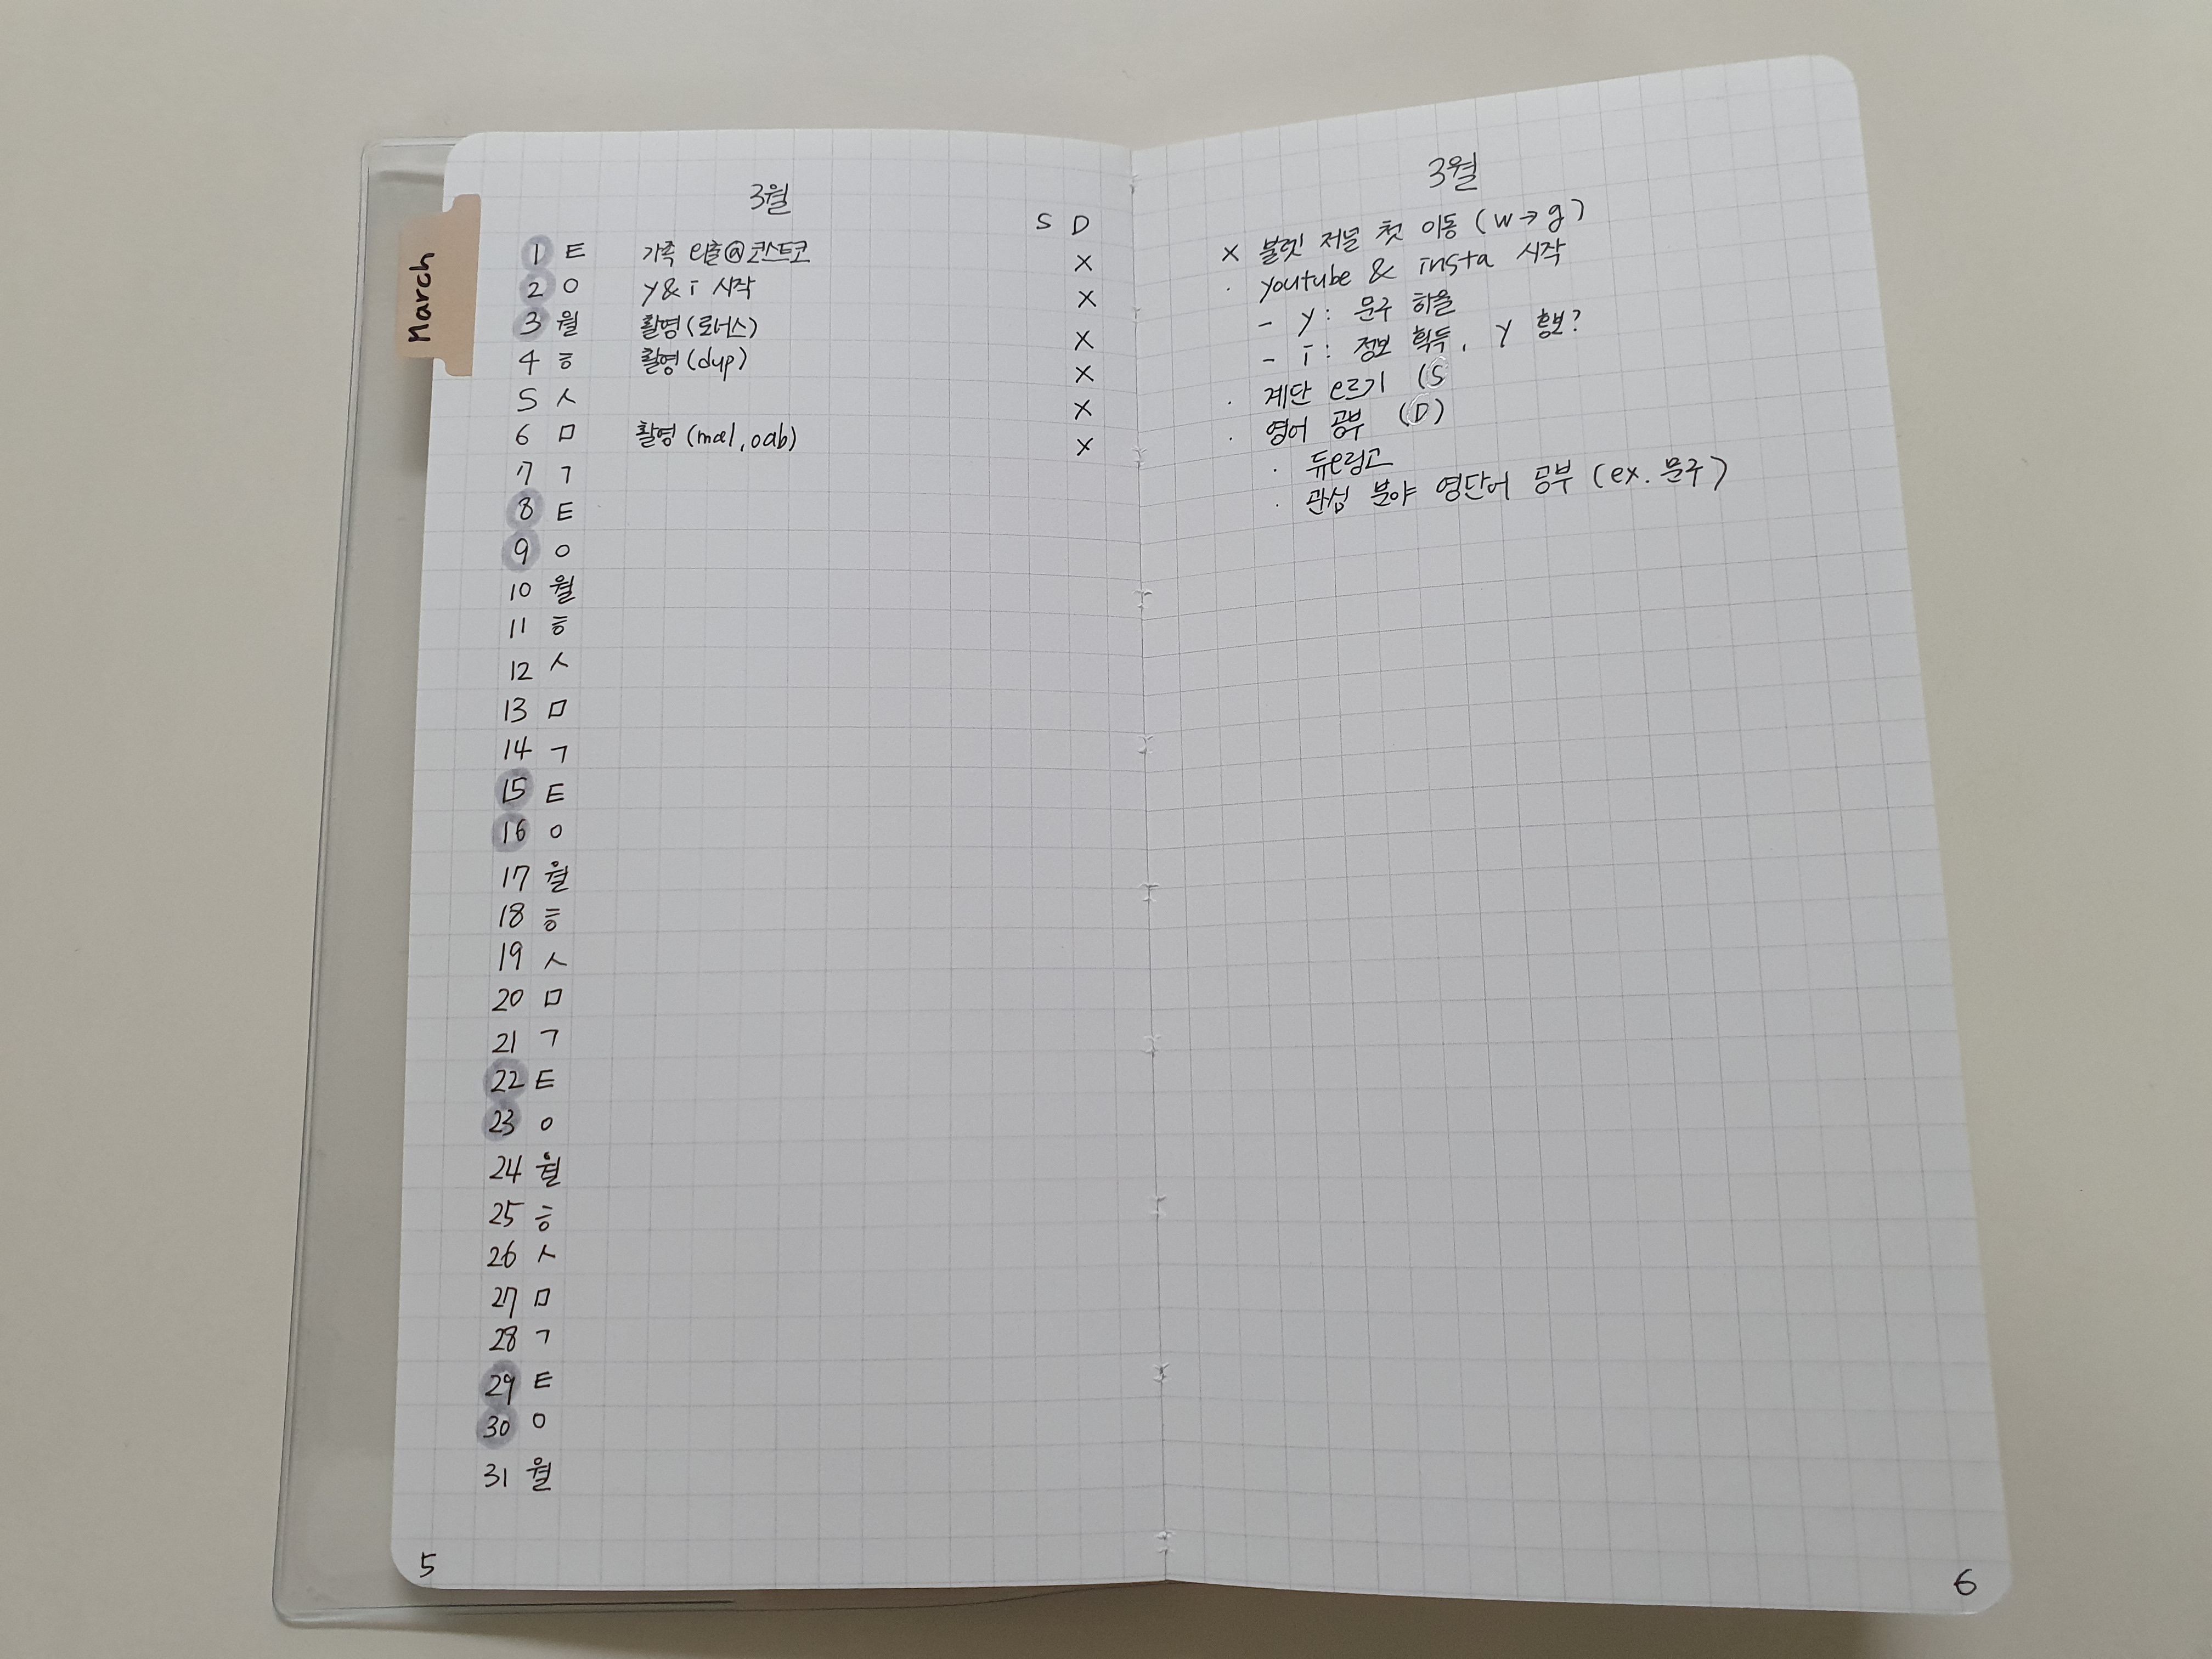 March
3월
S D
1 ㅌ 가족 외출@코스트코 X
2 ㅇ y&i 시작 X
3 월 촬영(로너스) X
4 ㅎ 촬영(dup) X
5 ㅅ X
6 ㅁ 촬영(mæl,oab) X
7 ㄱ
8 ㅌ
9 ㅇ
10 월
11 ㅎ
12 ㅅ
13 ㅁ
14 ㄱ
15 ㅌ
16 ㅇ
17 월
18 ㅎ
19 ㅅ
20 ㅁ
21 ㄱ
22 ㅌ
23 ㅇ
24 월
25 ㅎ
26 ㅅ
27 ㅁ
28 ㄱ
29 ㅌ
30 ㅇ
31 월
5
3월
X 불렛 저널 첫 이동 (w→g)
· youtube & insta 시작
- y: 문구 하울
- i: 정보 획득, y 홍보?
· 계단 오르기 (S
· 영어 공부 (D)
· 듀오링고
· 관심 분야 영단어 공부 (ex. 문구)
6